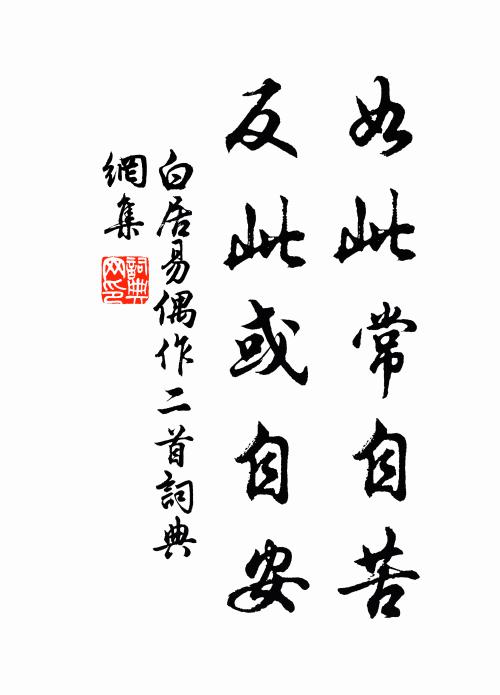 如此常自苦
反此或自安
白居易偶作二首詞典
網集
詞典網印